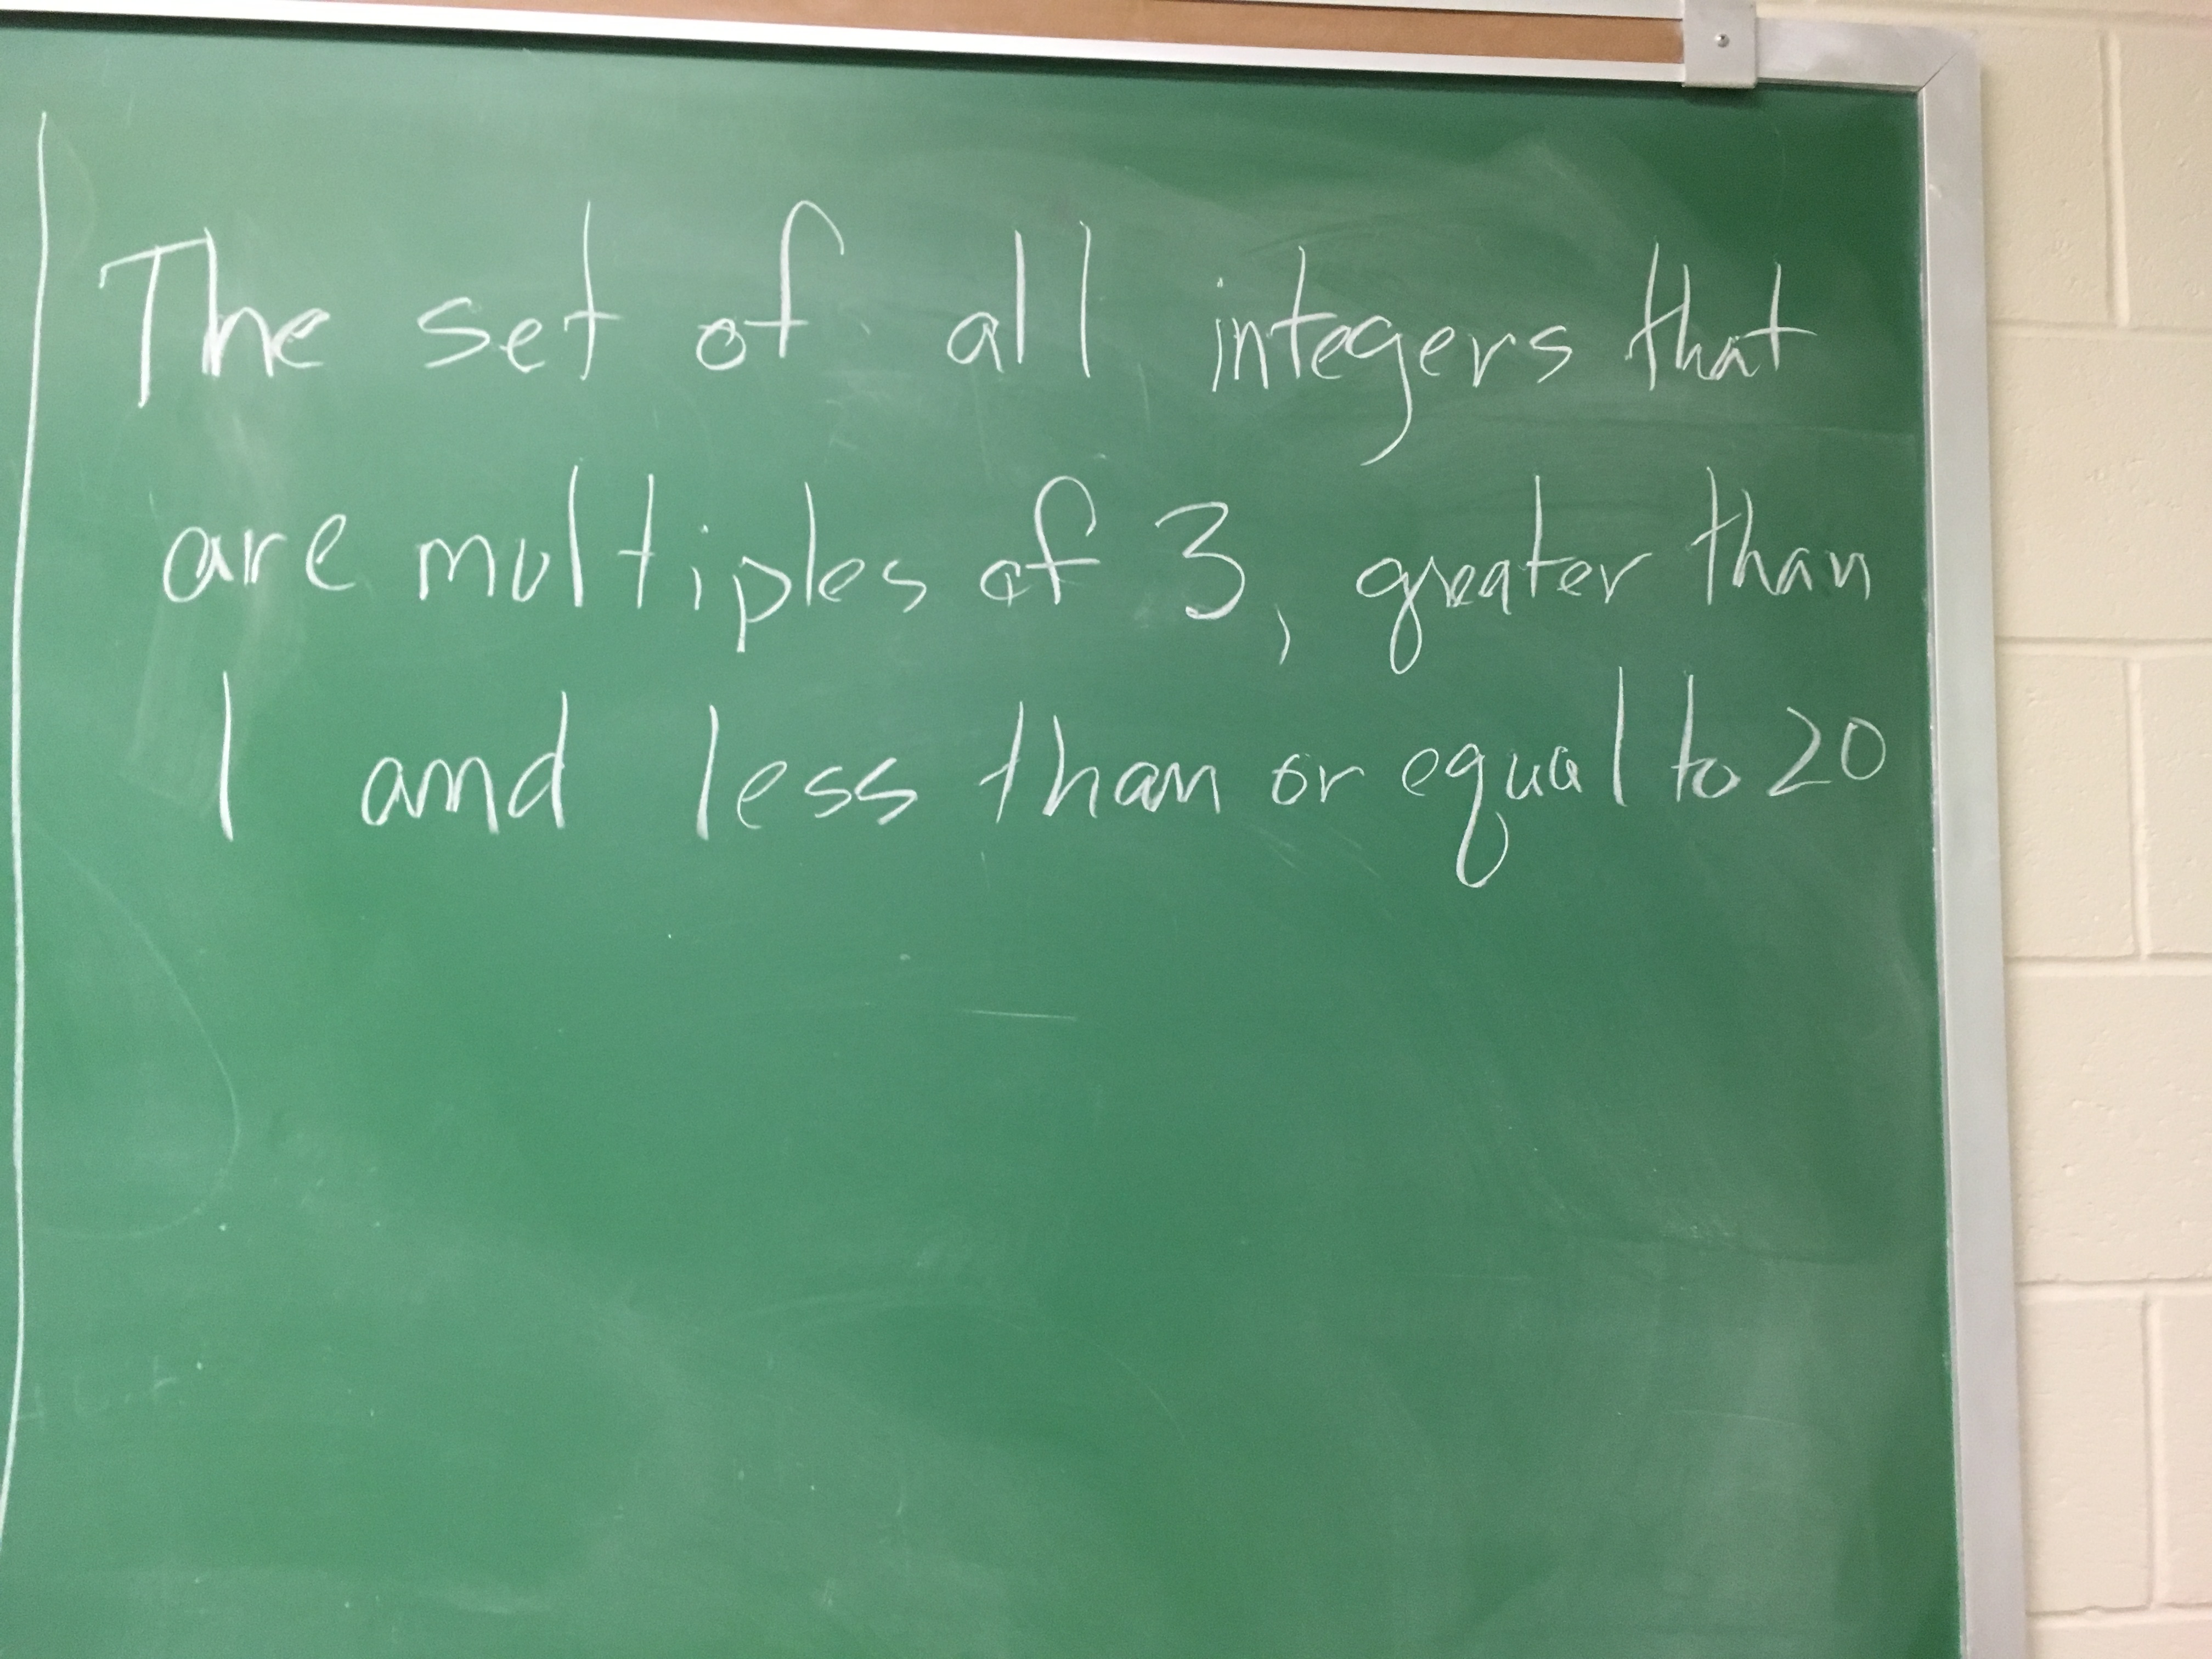 The set of all integers that
are multiples of 3, greater than
1 and less than or equal to 20